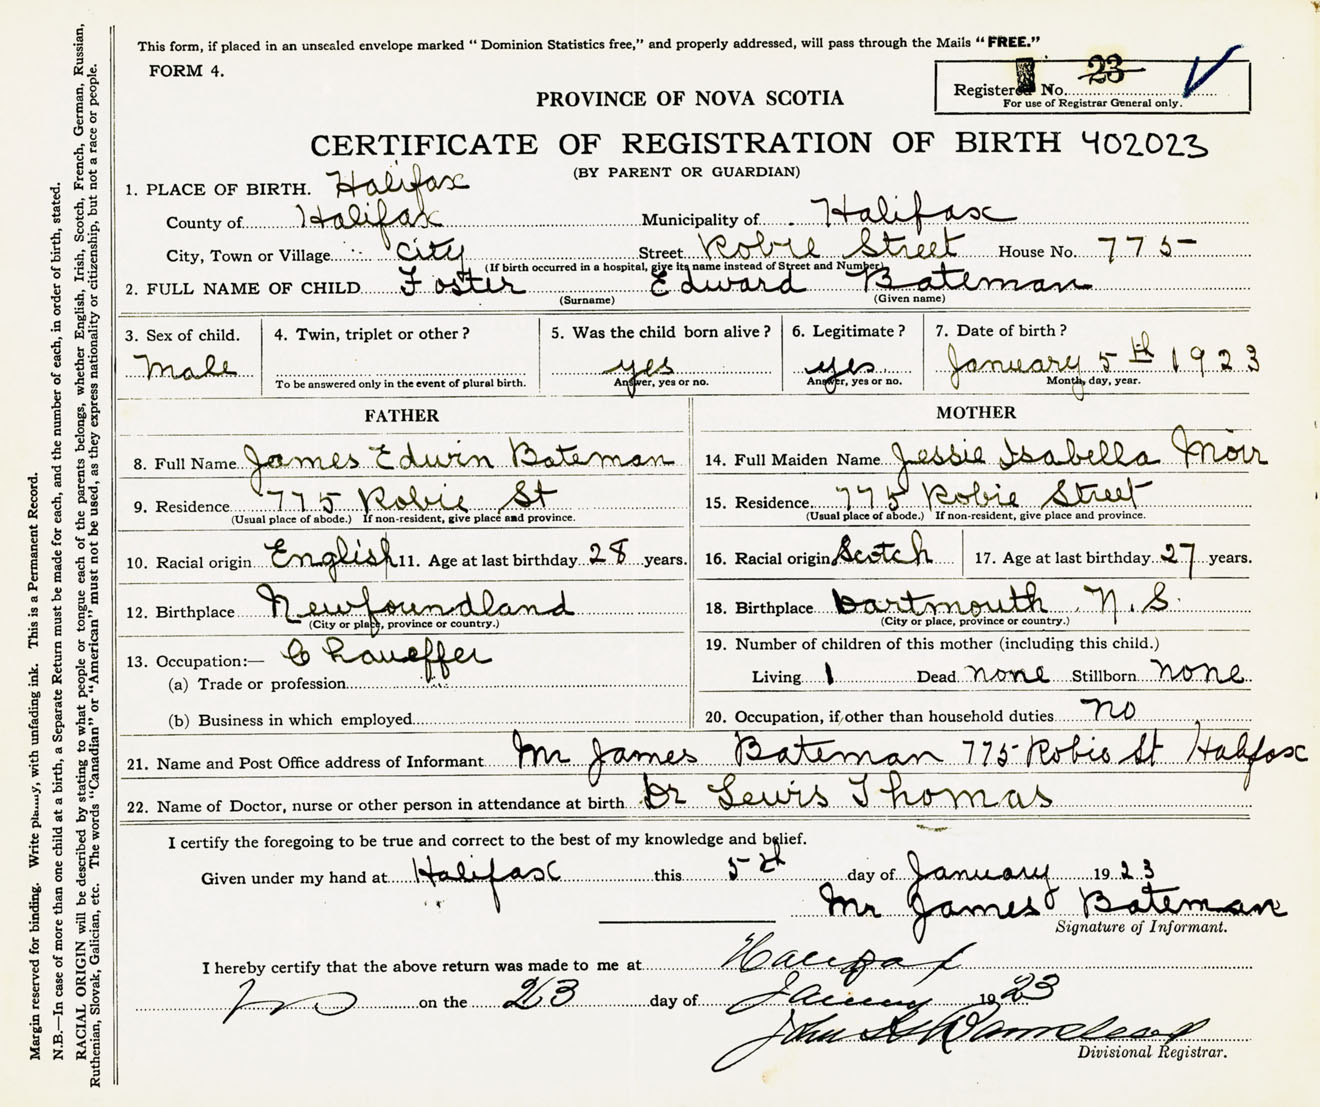 This form, if placed in an unsealed envelope marked “ Dominion Statistics free,” and properly addressed, will pass through the Mails “ FREE.”
FORM 4.
Registered No. 23
For use of Registrar General only.
PROVINCE OF NOVA SCOTIA
CERTIFICATE OF REGISTRATION OF BIRTH 402023
(BY PARENT OR GUARDIAN)
1. PLACE OF BIRTH. Halifax
County of Halifax Municipality of Halifax
City, Town or Village City Street Robie Street House No. 775
(If birth occurred in a hospital, give its name instead of Street and Number)
2. FULL NAME OF CHILD Foster Edward Bateman
(Surname) (Given name)
3. Sex of child. 4. Twin, triplet or other ? 5. Was the child born alive ? 6. Legitimate ? 7. Date of birth ?
Male yes yes January 5th 1923
To be answered only in the event of plural birth. Answer, yes or no. Answer, yes or no. Month, day, year.
FATHER
8. Full Name James Edwin Bateman
9. Residence 775 Robie St
(Usual place of abode.) If non-resident, give place and province.
10. Racial origin English 11. Age at last birthday 28 years.
12. Birthplace Newfoundland
(City or place, province or country.)
13. Occupation:— Chaueffer
(a) Trade or profession
(b) Business in which employed
MOTHER
14. Full Maiden Name Jessie Isabella Moir
15. Residence 775 Robie Street
(Usual place of abode.) If non-resident, give place and province.
16. Racial origin Scotch 17. Age at last birthday 27 years.
18. Birthplace Dartmouth N.S.
(City or place, province or country.)
19. Number of children of this mother (including this child.)
Living 1 Dead none Stillborn none
20. Occupation, if other than household duties no
21. Name and Post Office address of Informant Mr James Bateman 775 Robie St Halifax
22. Name of Doctor, nurse or other person in attendance at birth Dr Lewis Thomas
I certify the foregoing to be true and correct to the best of my knowledge and belief.
Given under my hand at Halifax this 5th day of January 1923
Mr James Bateman
Signature of Informant.
I hereby certify that the above return was made to me at Halifax
on the 23 day of January 1923
John
Divisional Registrar.
Margin reserved for binding. Write plainly, with unfading ink. This is a Permanent Record.
N.B.—In case of more than one child at a birth, a Separate Return must be made for each, and the number of each, in order of birth, stated.
RACIAL ORIGIN will be described by stating to what people or tongue each of the parents belongs, whether English, Irish, Scotch, French, German, Russian,
Ruthenian, Slovak, Galician, etc. The words “Canadian” or “American” must not be used, as they express nationality or citizenship, but not a race or people.